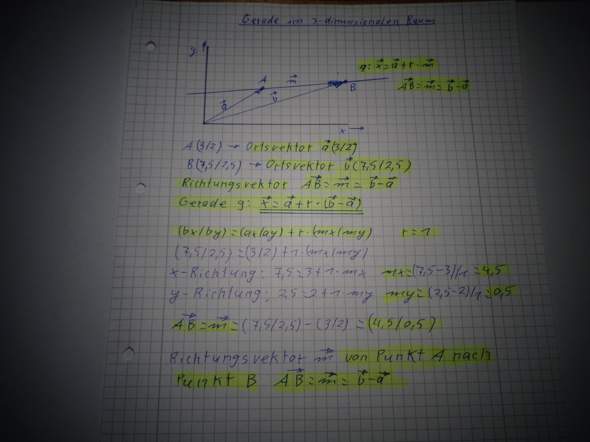 Gerade im 2-dimensionalen Raum
y
A
m⃗
g: x⃗=a⃗+r·m⃗
B
AB⃗=m⃗=b⃗-a⃗
a⃗
b⃗
x →
A(3/2) → Ortsvektor a⃗(3/2)
B(7,5/2,5) → Ortsvektor b⃗(7,5/2,5)
Richtungsvektor AB⃗=m⃗=b⃗-a⃗
Gerade g: x⃗=a⃗+r·(b⃗-a⃗)
(bx/by)=(ax/ay)+r·(mx/my) r=1
(7,5/2,5)=(3/2)+1·(mx/my)
x-Richtung: 7,5=3+1·mx mx=(7,5-3)/1=4,5
y-Richtung: 2,5=2+1·my my=(2,5-2)/1=0,5
AB⃗=m⃗=(7,5/2,5)-(3/2)=(4,5/0,5)
Richtungsvektor m⃗ von Punkt A nach
Punkt B AB⃗=m⃗=b⃗-a⃗